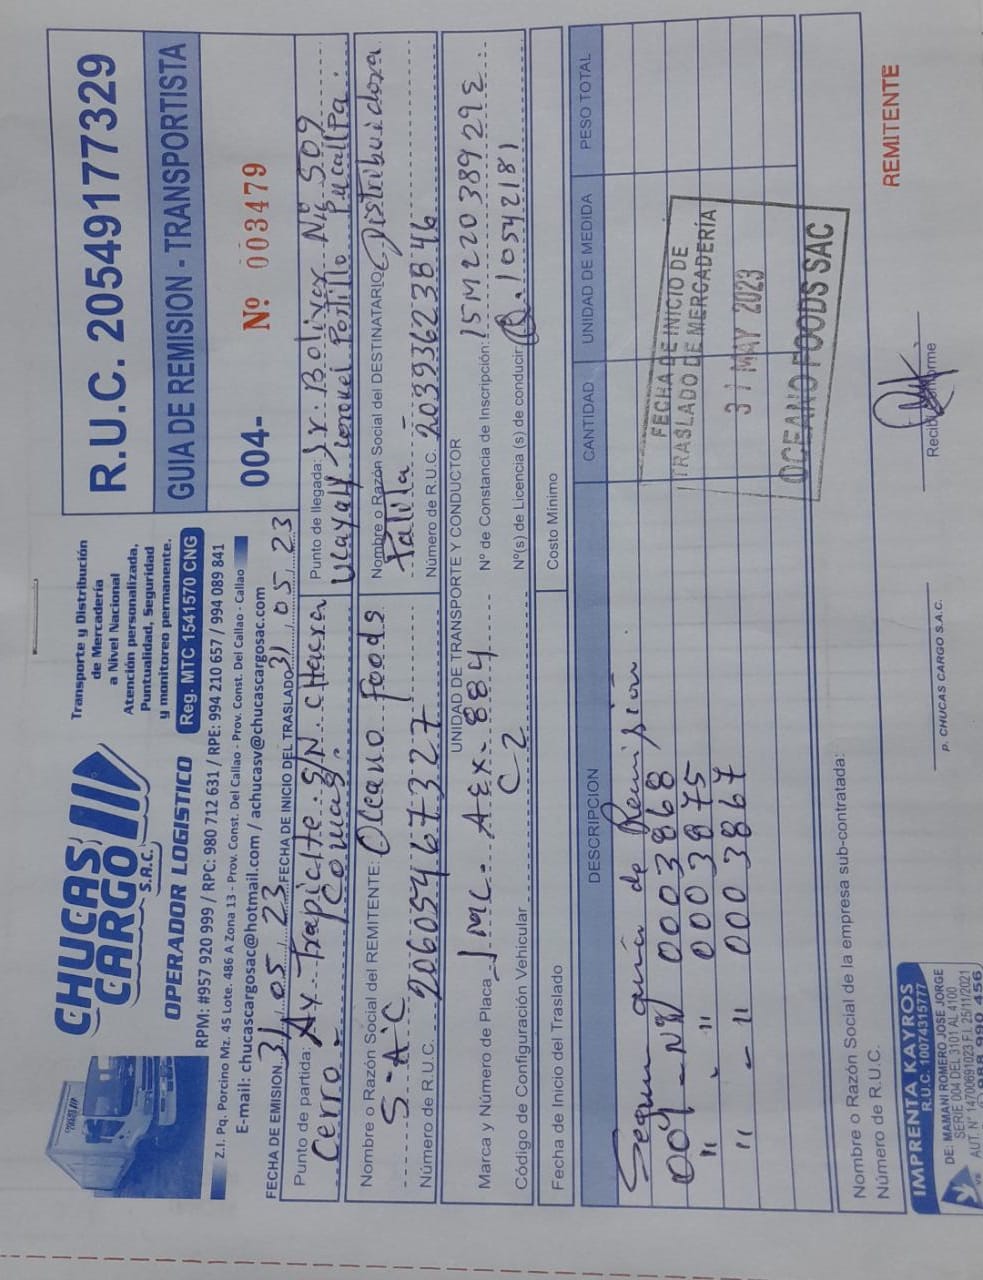 CHUCAS
CARGO
S.A.C.
OPERADOR LOGÍSTICO
Transporte y Distribución
de Mercadería
a Nivel Nacional
Atención personalizada,
Puntualidad, Seguridad
y monitoreo permanente.
Reg. MTC 1541570 CNG
RPM: #957 920 999 / RPC: 980 712 631 / RPE: 994 210 657 / 994 089 841
Z.I. Pq. Porcino Mz. 45 Lote. 486 A Zona 13 - Prov. Const. Del Callao - Prov. Const. Del Callao - Callao
E-mail: chucascargosac@hotmail.com / achucasv@chucascargosac.com
R.U.C. 20549177329
GUIA DE REMISION - TRANSPORTISTA
004- Nº 003479
FECHA DE EMISION 31 05 23 FECHA DE INICIO DEL TRASLADO 31 05 23
Punto de partida: Av Trapiche S/N. CHacra
Cerro - Comas.
Punto de llegada: Jr. Bolivar Nº 509
Ucayaly Coronel Portillo Pucallpa.
Nombre o Razón Social del REMITENTE: Oceano Foods
S.A.C
Número de R.U.C. 20605467327
Nombre o Razón Social del DESTINATARIO Distribuidora
Número de R.U.C. 20393623846
UNIDAD DE TRANSPORTE Y CONDUCTOR
Marca y Número de Placa JMC. AEX-884
Nº de Constancia de Inscripción: 15M22038929E
Código de Configuración Vehicular C2
Nº(s) de Licencia (s) de conducir: Q.10542181
Fecha de Inicio del Traslado
Costo Mínimo
DESCRIPCION CANTIDAD UNIDAD DE MEDIDA PESO TOTAL
Segun guía de Remisión
004 - Nº 0003868
" - " 0003875
" - " 0003867
FECHA DE INICIO DE
TRASLADO DE MERCADERÍA
31 MAY 2023
OCEANO FOODS SAC
Nombre o Razón Social de la empresa sub-contratada:
Número de R.U.C.
IMPRENTA KAYROS
R.U.C. 10074315777
DE: MAMANI ROMERO JOSE JORGE
SERIE 004 DEL 3101 AL 4100
AUT. N° 14700691023 F.I. 25/11/2021
988 990 456
p. CHUCAS CARGO S.A.C.
Recibí Conforme
REMITENTE